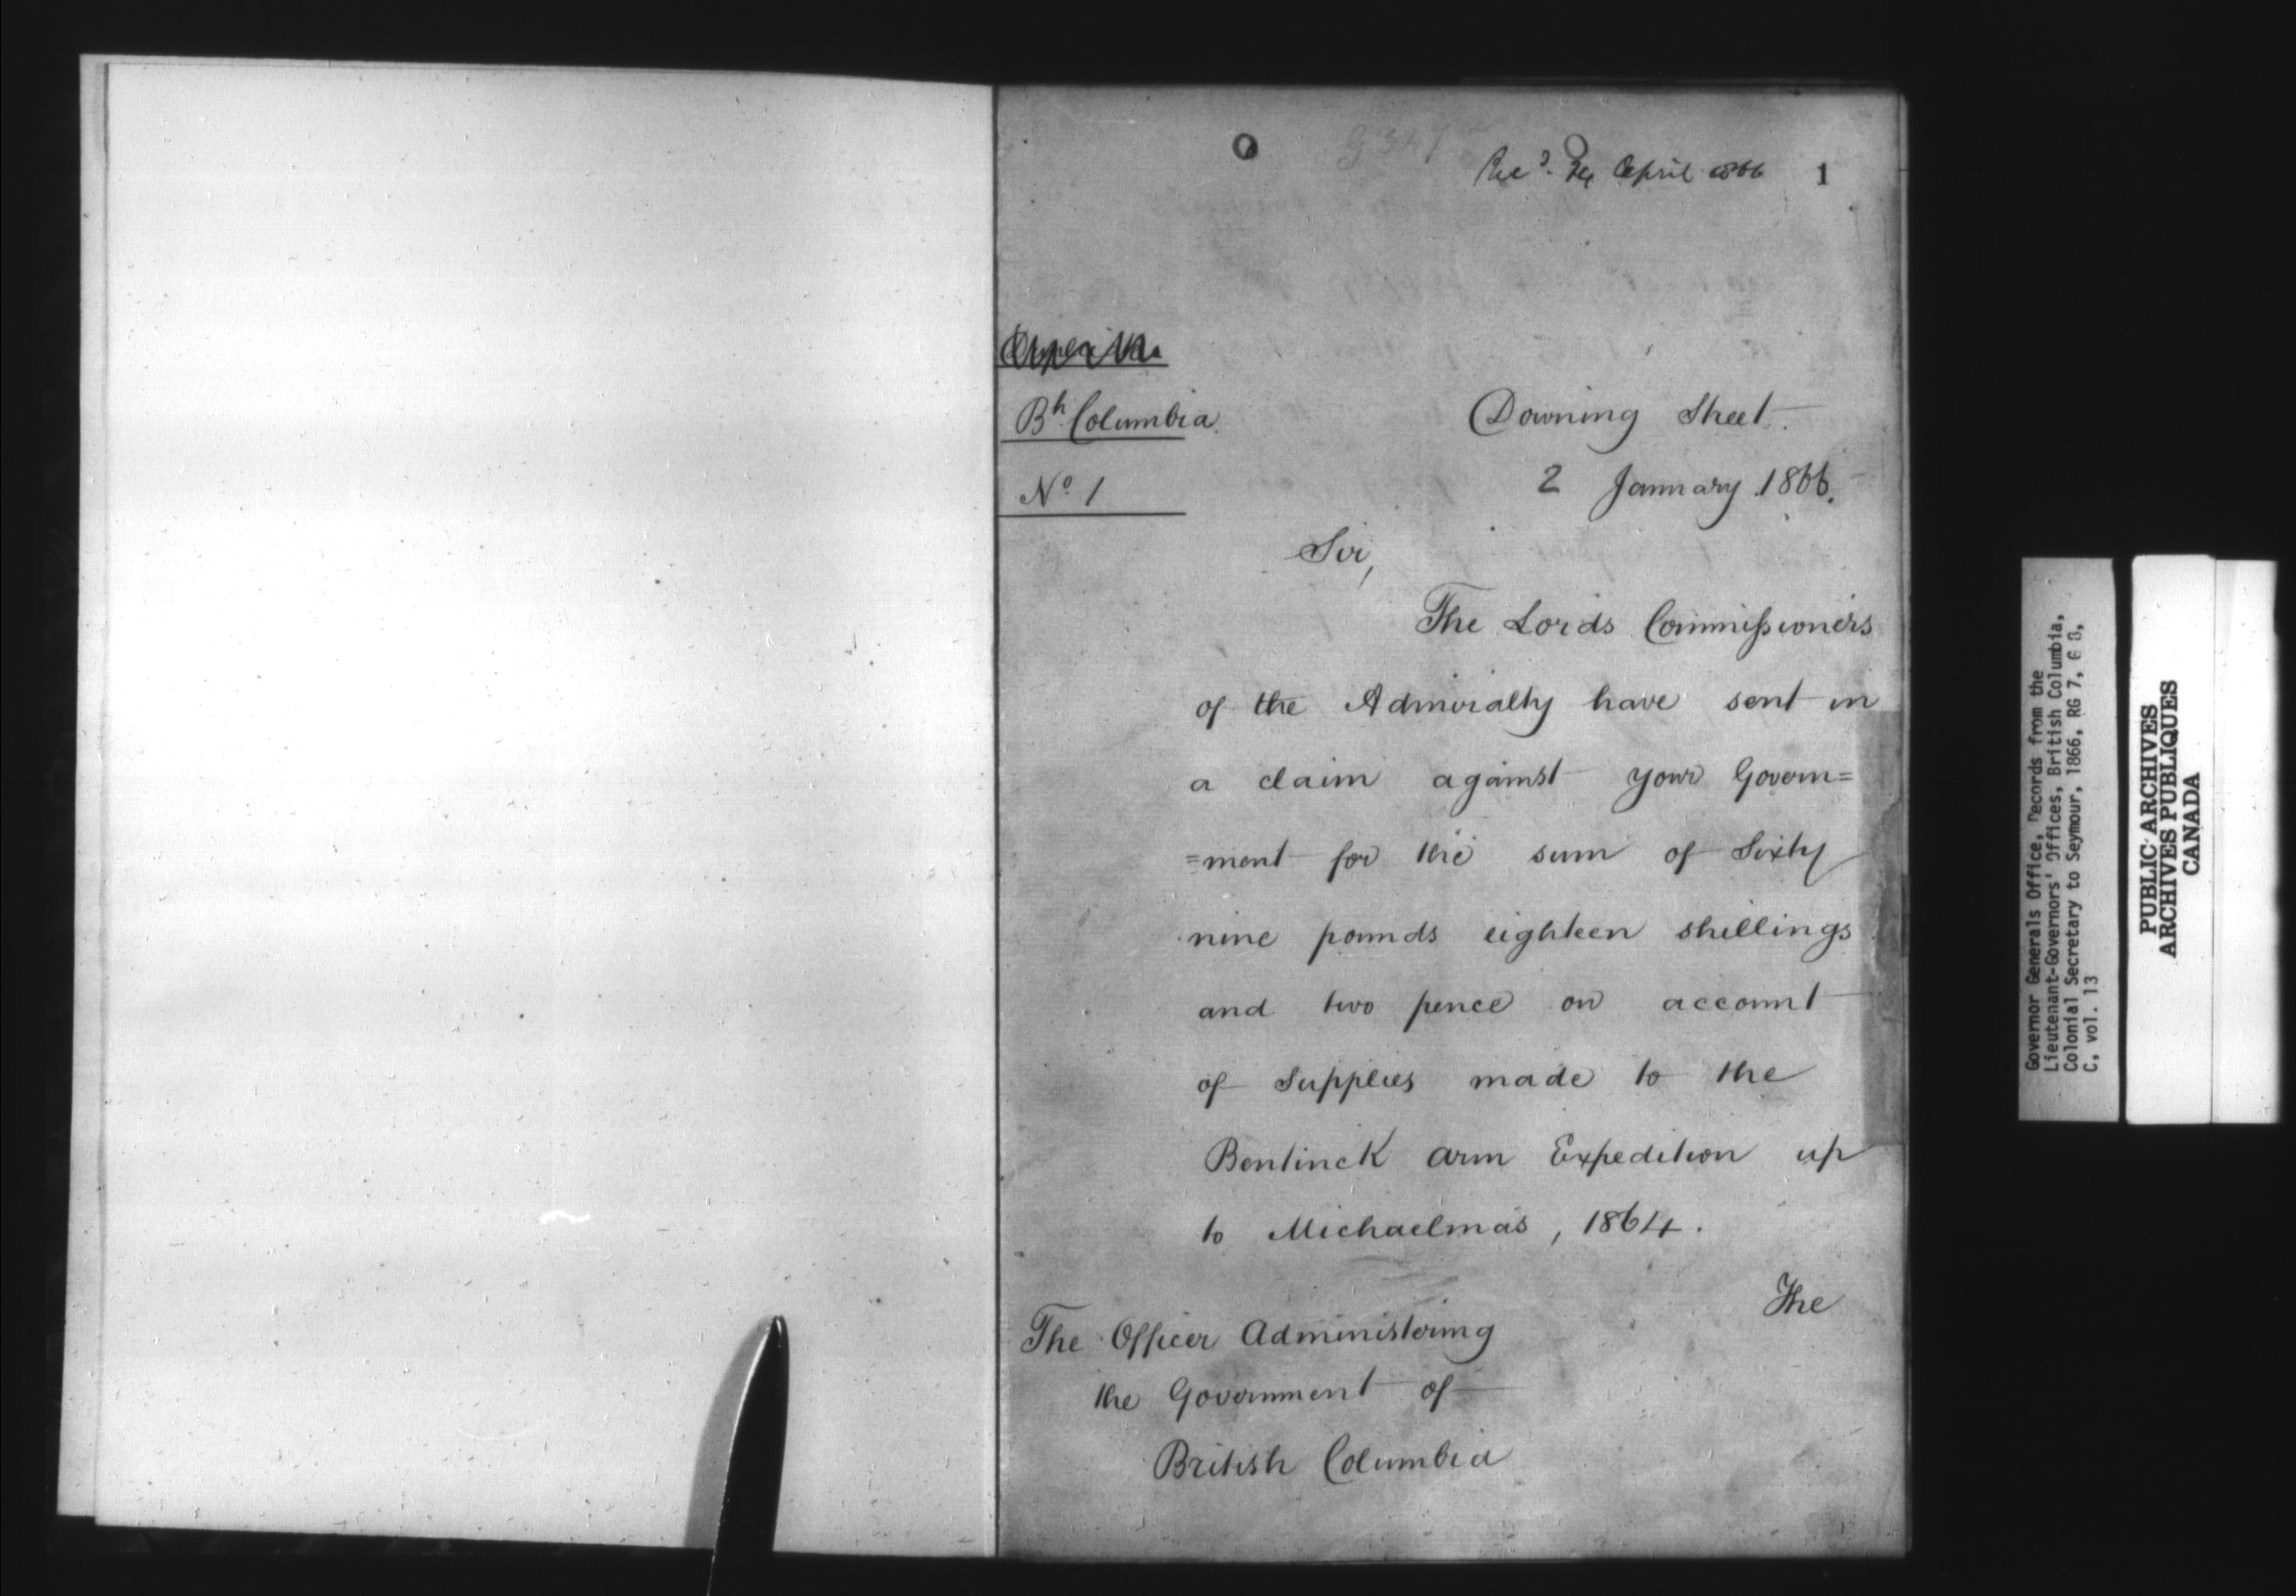 Rec^d. 24 April 1866
1
B^h. Columbia
N^o. 1
Downing Street.
2 January 1866.
Sir,
The Lords Commissioners
of the Admiralty have sent in
a claim against your Govern=
=ment for the sum of Sixty
nine pounds eighteen shillings
and two pence on account
of Supplies made to the
Bentinck arm Expedition up
to Michaelmas, 1864.
The
The Officer Administering
the Government of
British Columbia
Governor Generals Office, Records from the
Lieutenant-Governors' Offices, British Columbia,
Colonial Secretary to Seymour, 1866, RG 7, G 8,
C, vol. 13
PUBLIC ARCHIVES
ARCHIVES PUBLIQUES
CANADA